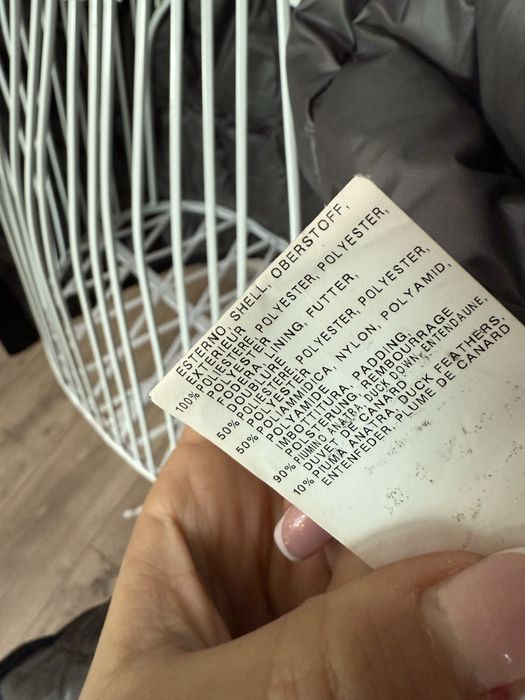 ESTERNO, SHELL, OBERSTOFF,
EXTERIEUR
100% POLIESTERE, POLYESTER, POLYESTER,
POLYESTER
FODERA, LINING, FUTTER,
DOUBLURE
50% POLIESTERE, POLYESTER, POLYESTER,
POLYESTER
50% POLIAMMIDICA, NYLON, POLYAMID,
POLYAMIDE
IMBOTTITURA, PADDING,
POLSTERUNG, REMBOURRAGE
90% PIUMINO ANATRA, DUCK DOWN, ENTENDAUNE,
DUVET DE CANARD
10% PIUMA ANATRA, DUCK FEATHERS,
ENTENFEDER, PLUME DE CANARD